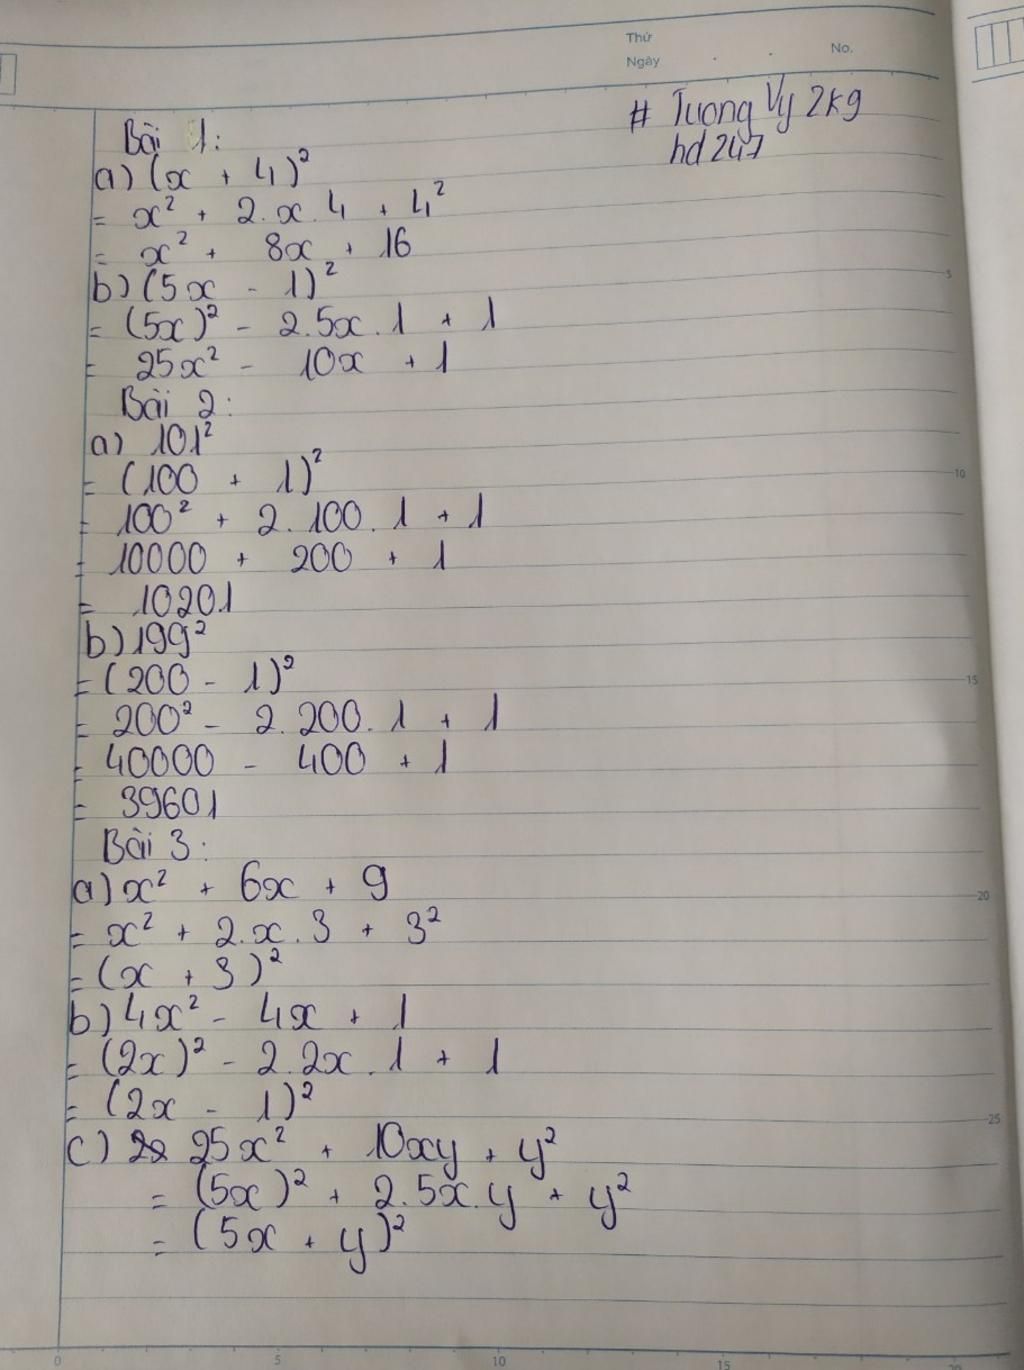 Thứ
Ngày
No.
# Tuong Vy 2kg
hd 247
Bài 1:
a) (x + 4)²
= x² + 2.x.4 + 4²
= x² + 8x + 16
b) (5x - 1)²
= (5x)² - 2.5x.1 + 1
= 25x² - 10x + 1
Bài 2:
a) 101²
= (100 + 1)²
= 100² + 2.100.1 + 1
= 10000 + 200 + 1
= 10201
b) 199²
= (200 - 1)²
= 200² - 2.200.1 + 1
= 40000 - 400 + 1
= 39601
Bài 3:
a) x² + 6x + 9
= x² + 2.x.3 + 3²
= (x + 3)²
b) 4x² - 4x + 1
= (2x)² - 2.2x.1 + 1
= (2x - 1)²
c) 25x² + 10xy + y²
= (5x)² + 2.5x.y + y²
= (5x + y)²
5
10
15
20
25
0 5 10 15 20